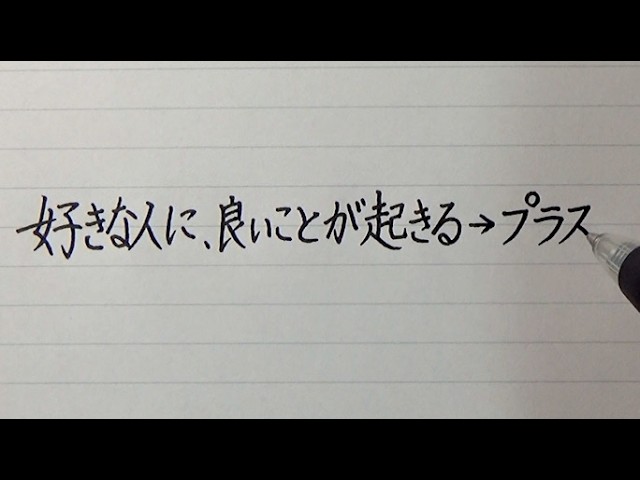 好きな人に、良いことが起きる→プラス